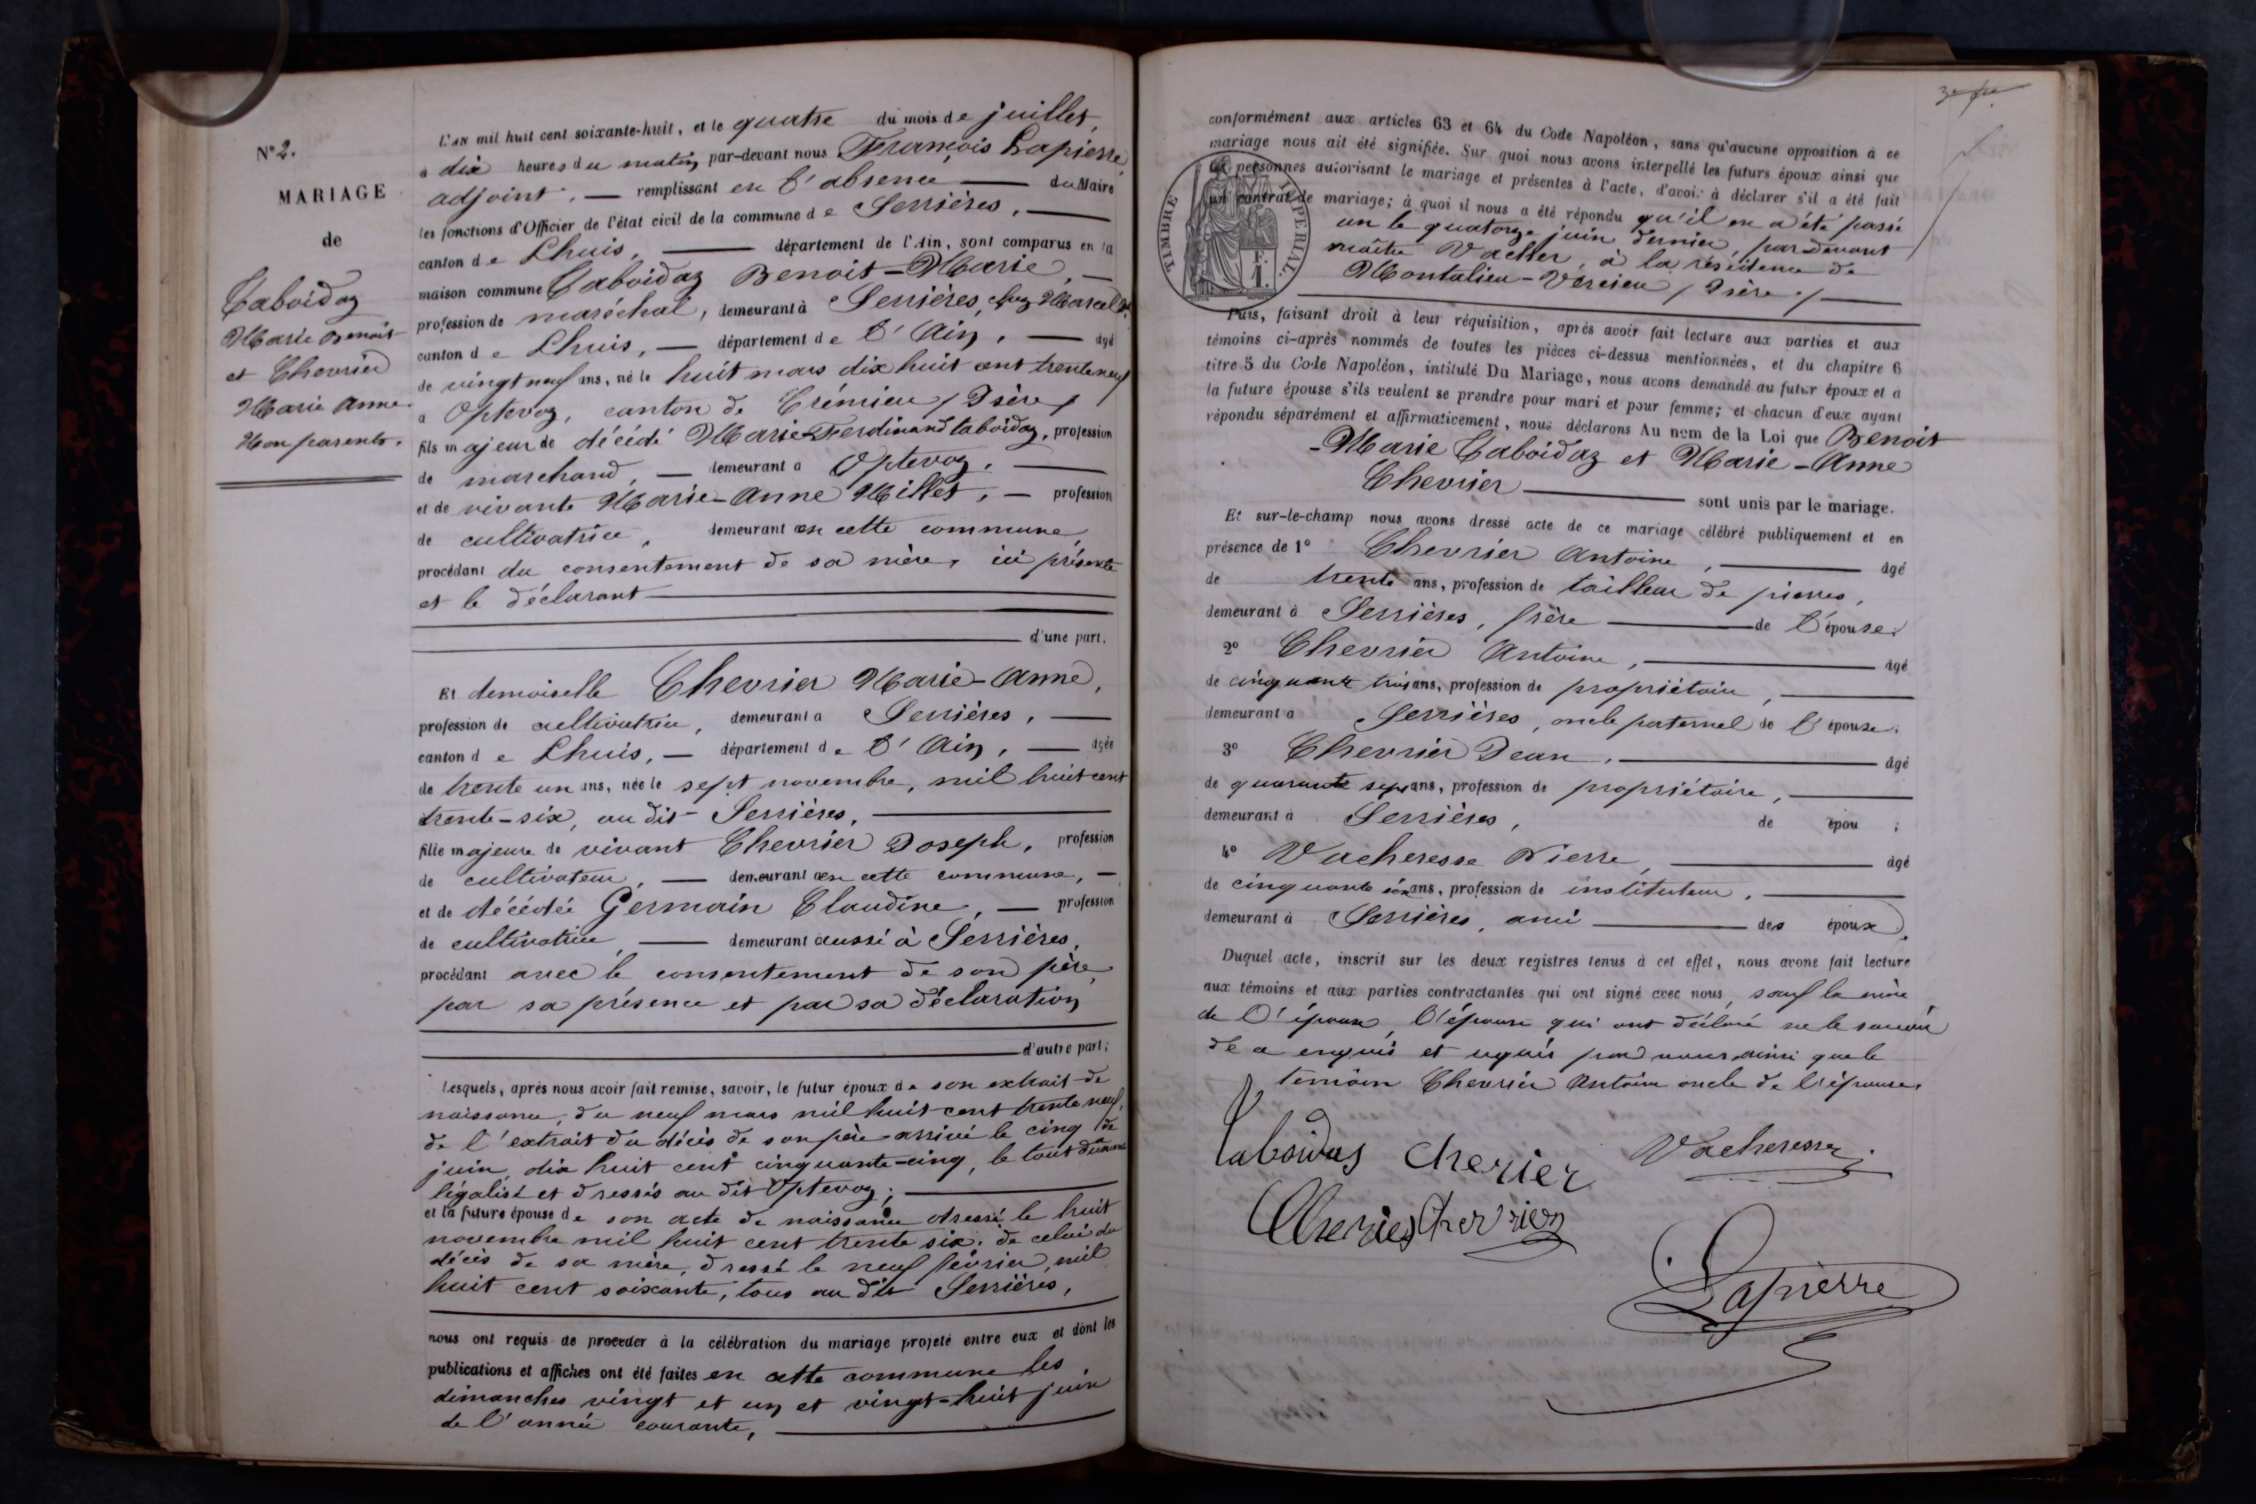 N° 2.
MARIAGE
de
Caboidaz
Marie Benoit
et Chevrier
Marie Anne
Non parents.
L'an mil huit cent soixante-huit, et le quatre du mois de juillet,
à dix heures du matin, par-devant nous François Lapierre,
adjoint, remplissant en l'absence du Maire
les fonctions d'Officier de l'état civil de la commune de Serrières,
canton de Lhuis, département de l'Ain, sont comparus en la
maison commune Caboidaz Benoit-Marie,
profession de maréchal, demeurant à Serrières, chez Marcel
canton de Lhuis, département de l'Ain, âgé
de vingt neuf ans, né le huit mars dix huit cent trente neuf
à Optevoz, canton de Crémieu (Isère)
fils majeur de décédé Marie-Ferdinand Caboidaz, profession
de marchand, demeurant à Optevoz,
et de vivante Marie-Anne Millet, profession
de cultivatrice, demeurant en cette commune,
procédant du consentement de sa mère, ici présente
et le déclarant
d'une part.
Et demoiselle Chevrier Marie-Anne,
profession de cultivatrice, demeurant à Serrières,
canton de Lhuis, département de l'Ain, âgée
de trente un ans, née le sept novembre, mil huit cent
trente-six, au dit Serrières,
fille majeure de vivant Chevrier Joseph, profession
de cultivateur, demeurant en cette commune,
et de décédée Germain Claudine, profession
de cultivatrice, demeurant aussi à Serrières,
procédant avec le consentement de son père,
par sa présence et par sa déclaration
d'autre part;
Lesquels, après nous avoir fait remise, savoir, le futur époux de son extrait de
naissance, du neuf mars mil huit cent trente neuf,
de l'extrait du décès de son père arrivé le cinq de
juin, dix huit cent cinquante-cinq, le tout dûment
légalisé et dressés au dit Optevoz;
et la future épouse de son acte de naissance dressé le huit
novembre mil huit cent trente six. de celui du
décès de sa mère, dressé le neuf février, mil
huit cent soixante, tous au dit Serrières,
nous ont requis de procéder à la célébration du mariage projeté entre eux et dont les
publications et affiches ont été faites en cette commune les
dimanches vingt et un et vingt-huit juin
de l'année courante,
conformément aux articles 63 et 64 du Code Napoléon, sans qu'aucune opposition à ce
mariage nous ait été signifiée. Sur quoi nous avons interpellé les futurs époux ainsi que
les personnes autorisant le mariage et présentes à l'acte, d'avoir à déclarer s'il a été fait
un contrat de mariage; à quoi il nous a été répondu qu'il en a été passé
un le quatorze juin dernier, par devant
maître Vacher, à la résidence de
Montalieu-Vercieu (Isère)
TIMBRE IMPERIAL
F. 1.
Puis, faisant droit à leur réquisition, après avoir fait lecture aux parties et aux
témoins ci-après nommés de toutes les pièces ci-dessus mentionnées, et du chapitre 6
titre 5 du Code Napoléon, intitulé Du Mariage, nous avons demandé au futur époux et à
la future épouse s'ils veulent se prendre pour mari et pour femme; et chacun d'eux ayant
répondu séparément et affirmativement, nous déclarons Au nom de la Loi que Benoit
-Marie Caboidaz et Marie-Anne
Chevrier sont unis par le mariage.
Et sur-le-champ nous avons dressé acte de ce mariage célébré publiquement et en
présence de 1° Chevrier Antoine, âgé
de trente ans, profession de tailleur de pierres,
demeurant à Serrières, frère de l'épouse.
2° Chevrier Antoine, âgé
de cinquante trois ans, profession de propriétaire,
demeurant à Serrières, oncle paternel de l'épouse.
3° Chevrier Jean, âgé
de quarante sept ans, profession de propriétaire,
demeurant à Serrières, de épou ;
4° Vacheresse Pierre, âgé
de cinquante ans, profession de instituteur,
demeurant à Serrières, ami des époux,
Duquel acte, inscrit sur les deux registres tenus à cet effet, nous avons fait lecture
aux témoins et aux parties contractantes qui ont signé avec nous, sauf la mère
de l'époux, l'épouse qui ont déclaré ne le savoir
de a enquis et requis par nous ainsi que le
témoin Chevrier Antoine oncle de l'épouse.
Caboidas Cherier Vacheresse
Cherier Chevrier
Lapierre